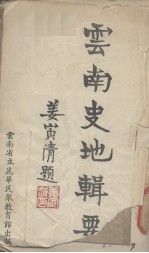 雲南史地輯要
姜寅清題
雲南省立昆華民眾教育館出版